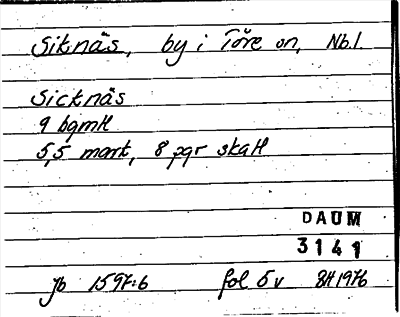 Siknäs, by i Töre sn, Nb.l.
Sicknäs
9 bgmtl
5,5 mark, 8 pgr skatt
DAUM
3141
Jb 1597:6 fol 5v BH 1976